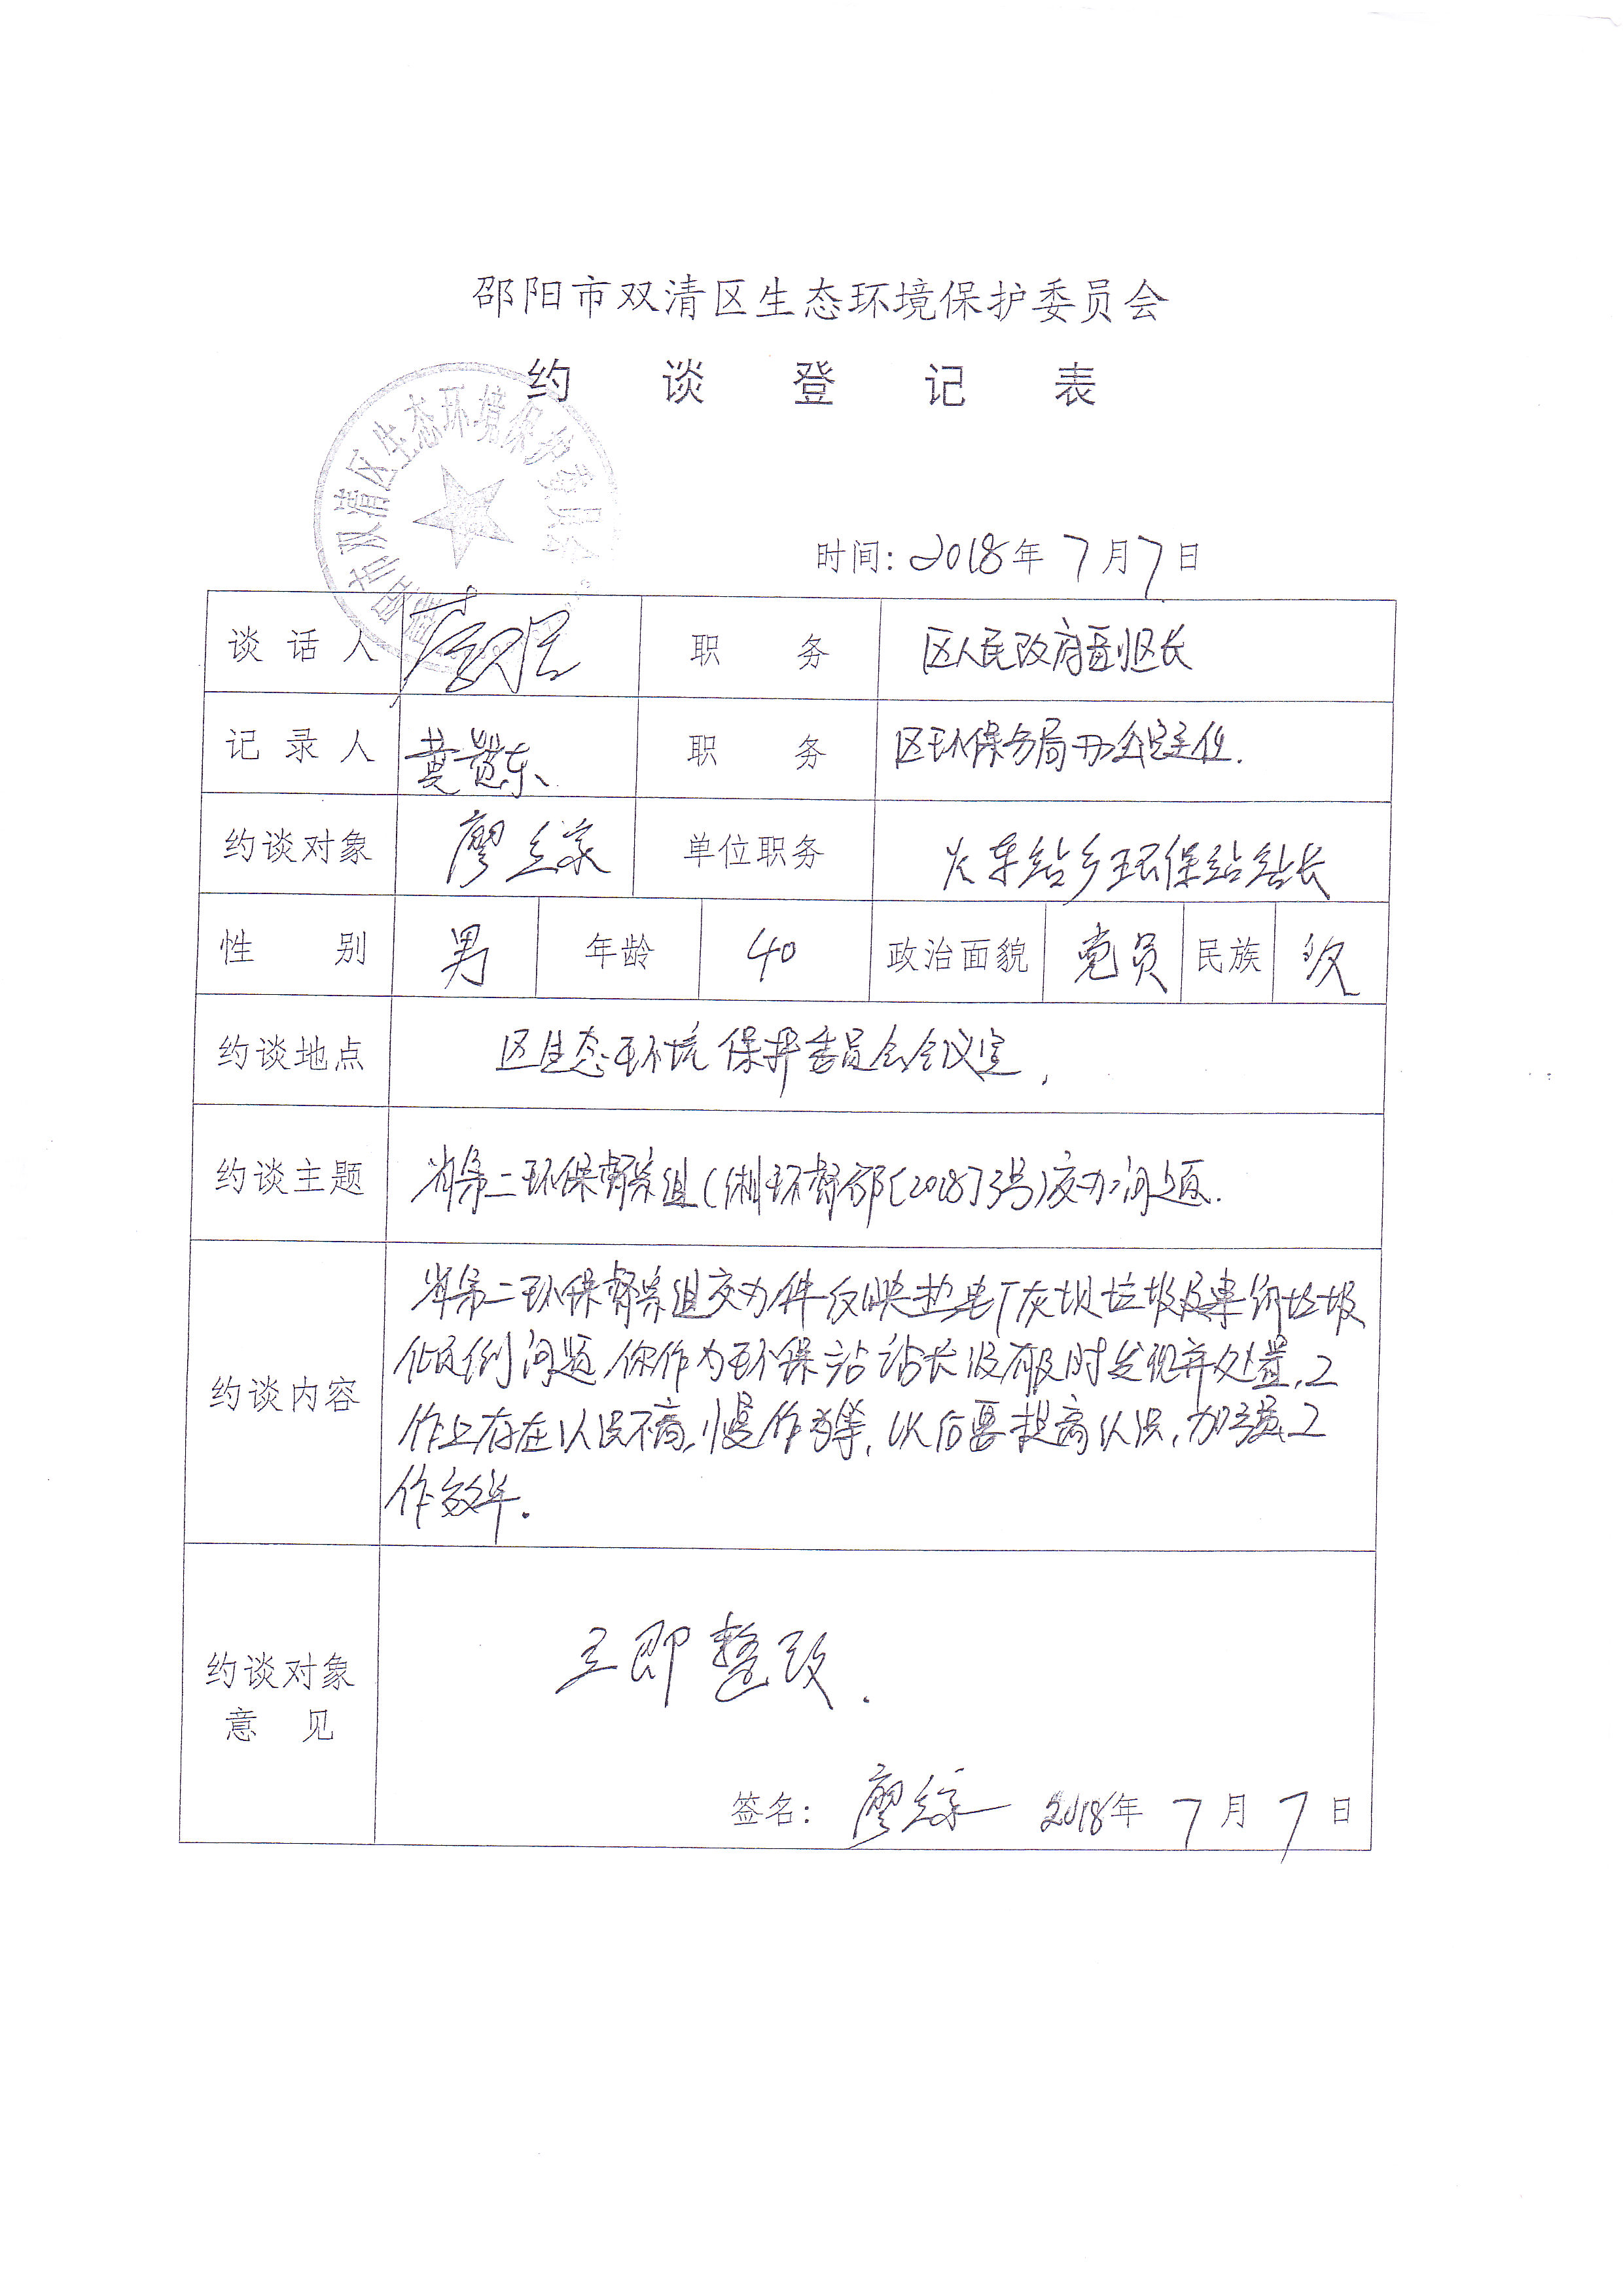 邵阳市双清区生态环境保护委员会
约谈登记表
市双清区生态环境保护委员会
时间：2018年7月7日
谈话人 职务 区人民政府副区长
记录人 职务 区环保分局办公室主任.
约谈对象 廖 单位职务 火车站乡环保站站长
性别 男 年龄 40 政治面貌 党员 民族 汉
约谈地点 区生态环境保护委员会会议室.
约谈主题 省第二环保督察组(湘环督邵[2018]3号)交办问题.
约谈内容 省第二环保督察组交办件反映热电厂灰坝垃圾及建筑垃圾
倾倒问题,你作为环保站站长没有及时发现并处置,工
作上存在认识不高,慢作为等,以后要提高认识,加强工
作效率.
约谈对象
意见
立即整改.
签名：廖 2018年7月7日